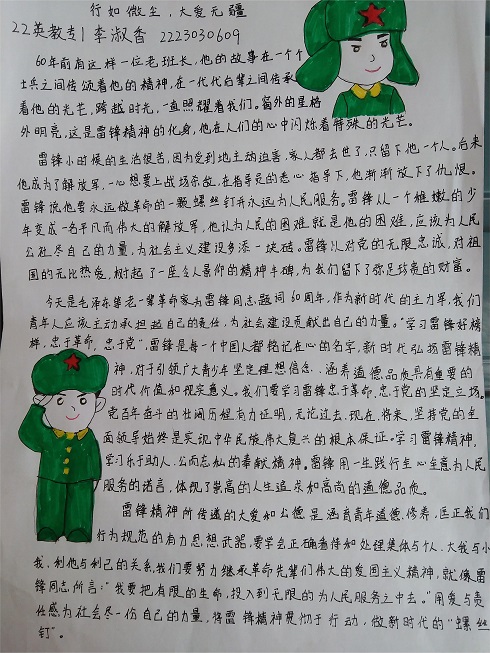 行如微尘，大爱无疆
22英教专1 李淑香 2223030609
60年前有这样一位老班长，他的故事在一个个
士兵之间传颂着他的精神，在一代代后辈之间传承
着他的光芒，跨越时光，一直照耀着我们。窗外的星格
外明亮，这是雷锋精神的化身，他在人们的心中闪烁着特殊的光芒。
雷锋小时候的生活很苦，因为受到地主动迫害，家人都去世了，只留下他一个人。后来
他成为了解放军，一心想要上战场杀敌，在指导员的悉心指导下，他渐渐放下了仇恨。
雷锋说他要永远做革命的一颗螺丝钉并永远为人民服务。雷锋从一个稚嫩的少
年变成一名平凡而伟大的解放军，他认为人民的困难就是他的困难，应该为人民
公社尽自己的力量，为社会主义建设多添一块砖。雷锋以对党的无限忠诚，对祖
国的无比热爱，树起了一座令人景仰的精神丰碑，为我们留下了弥足珍贵的财富。
今天是毛泽东等老一辈革命家为雷锋同志题词60周年，作为新时代的主力军，我们
青年人应该主动承担起自己的责任，为社会建设贡献出自己的力量。“学习雷锋好榜
样，忠于革命，忠于党”，雷锋是每一个中国人都铭记在心的名字，新时代弘扬雷锋精
神，对于引领广大青少年坚定理想信念、涵养道德品质具有重要的
时代价值和现实意义。我们要学习雷锋忠于革命、忠于党的坚定立场。
党百年奋斗的壮阔历程有力证明，无论过去、现在、将来，坚持党的全
面领导始终是实现中华民族伟大复兴的根本保证。学习雷锋精神，
学习乐于助人、公而忘私的奉献精神。雷锋用一生践行全心全意为人民
服务的诺言，体现了崇高的人生追求和高尚的道德品质。
雷锋精神所传递的大爱和公德是涵育青年道德修养，匡正我们
行为规范的有力思想武器，要学会正确看待和处理集体与个人、大我与小
我、利他与利己的关系，我们要努力继承革命先辈们伟大的爱国主义精神，就像雷
锋同志所言：“我要把有限的生命，投入到无限的为人民服务之中去。”用爱与责
任感为社会尽一份自己的力量，将雷锋精神贯彻于行动，做新时代的“螺丝
钉”。